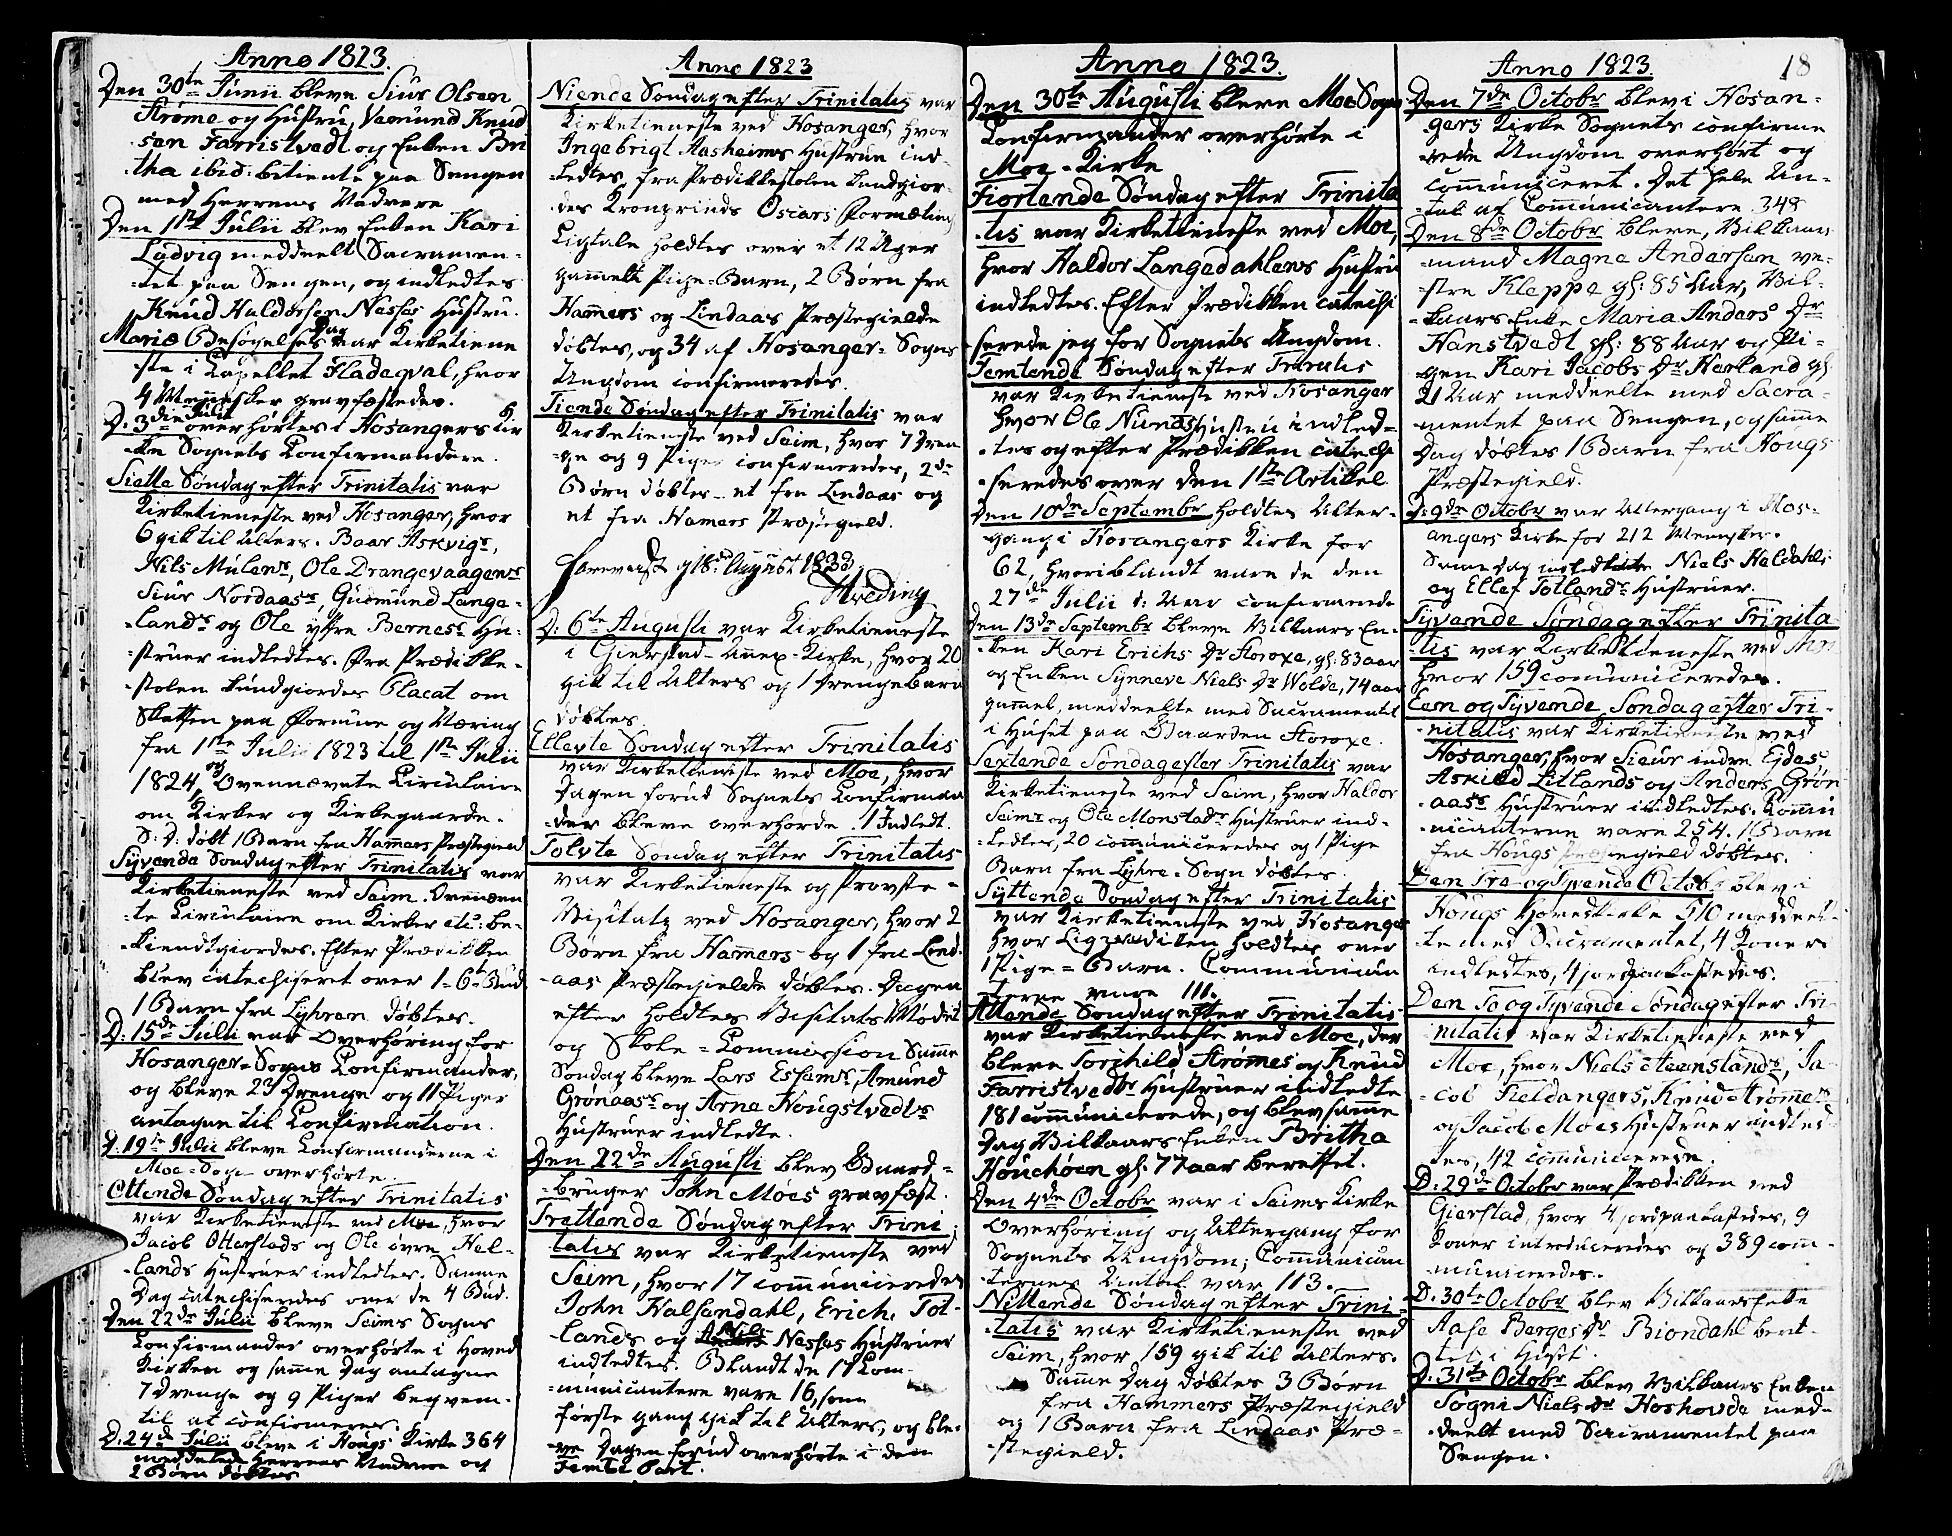 Anno 1823.
Den 30te Junii bleve Siur Olsen
Strøme og Hustru, Vaemund Knud
sen Farristvedt og Enken Bri
-tha ibid: betiente paa Sengen
med Herrens Nadvere
Den 1ste Julii blev Enken Kari
Ladvig meddeelt Sacramen-
-tet paa Sengen, og indledtes
Knud Haldorsen Nesses Hustru.
Mariæ Besøgelses Dag var Kirketiene
ste i Capellet Fladeqval, hvor
4 Mennesker gravfæstedes.
D: 3die Julii overhørtes i Hosangers Kir
-ke Sognets Confirmandere.
Siette Søndag efter Trinitatis var
Kirketieneste ved Hosanger, hvor
6 gik til Alters. Baar Askvigs,
Nils Mulens, Ole Drangevaagens
Siur Nordaass, Gudmund Lange-
-lands og Ole ytre Berness Hu-
-struer indledtes. Fra Prædikke-
-stolen kundgiordes Placat om
Skatten paa Formue og Næring
fra 1ste Julii 1823 til 1ste Julii
1824, og Ovennævnte Circulaire
om Kirker og Kirkegaarde.
S: D: døbt 1 Barn fra Hammers Præstegield
Syvende Søndag efter Trinitatis var
Kirketieneste ved Seim. Ovennævn
-te Circulaire om Kirker etc: be-
-kiendtgiordes. Efter Prædikken
blev catechiseret over 1-6te Bud.
1 Barn fra Lyhren døbtes.
D: 15de Julii var Overhøring for
Hosanger-Sogns Confirmander,
og bleve 23 Drenge og 11 Piger
antagne til Confirmation.
D. 19de Julii bleve Confirmanderne i
Moe-Sogn overhørte.
Ottende Søndag efter Trinitatis
var Kirketieneste ved Moe, hvor
Jacob Otterstads og Ole øvre Hel-
-lands Hustruer indledtes. Samme
Dag catechiseredes over de 4 Bud.
Den 22de Julii bleve Seims Sogns
Confirmander overhørte i Hoved
Kirken og samme Dag antagne
7 Drenge og 9 Piger beqvem-
til at confirmeres.
D: 24de Julii bleve i Hougs Kirke 364
meddeelede Herrens Nadvere og
2 Børn døbtes
Anno 1823
Niende Søndag efter Trinitatis var
Kirketieneste ved Hosanger, hvor
Ingebrigt Aasheims Hustrue ind-
-ledtes, fra Prædikkestolen kundgior-
des Kronprinds Oscars Formæling
Ligtale holdtes over et 12 Uger
gammelt Pige-Barn, 2 Børn fra
Hammers og Lindaas Præstegielde
døbtes, og 34 af Hosanger-Sogns
Ungdom confirmeredes.
Tiende Søndag efter Trinitatis var
Kirketieneste ved Seim, hvor 7 Dren
-ge og 9 Piger confirmeredes, 2de
Børn døbtes- et fra Lindaas og
et fra Hamers Præstegield.
18de August 1823
D: 6te Augusti var Kirketieneste
i Gierstad-Annex-Kirke, hvor 20
gik til Alters og 1 Drengebarn
døbtes.
Ellevte Søndag efter Trinitatis
var Kirketieneste ved Moe, hvor
Dagen forud Sognets Confirman
-der bleve overhørde. 1 Indledt.
Tolvte Søndag efter Trinitatis
var Kirketieneste og Provste-
Visitatz ved Hosanger, hvor 2
Børn fra Hammers og 1 fra Lind-
-aas Præstegielde døbtes. Dagen
efter holdtes Visitats Mødet
og Skole-Commission Samme
Søndag bleve Lars Essems, Amund
Grønaass og Arne Hougstvedts
Hustruer indledte.
Den 22de Augusti blev Gaard-
-bruger John Moes gravfæst.
Trettende Søndag efter Trini
-tatis var Kirketieneste ved
Seim, hvor 17 communiceredes
John Kalsandahl, Erich Tot-
-lands og Nesses Hustruer
indledtes. Blandt de 17 Com-
-municantere vare 16, som
første gang gik til Alters, og ble-
-ve Dagen forud overhørte i den
Femte Part.
Anno 1823.
Den 30te Augusti bleve Moe Sogns
Confirmander overhørte i
Moe-Kirke
Fiortende Søndag efter Trinita
-tis var Kirketieneste ved Moe,
hvor Haldor Langedahlens Hustru
indledtes. Efter Prædikken catechi
-serede jeg for Sognets Ungdom.
Femtende Søndag efter Trinitatis
var Kirketieneste ved Hosanger
hvor Ole Nunds Hustru indled-
-tes og efter Prædikken catechi
-seredes over den 1ste Artikel
Den 10de Septembr holdtes Alter-
gang i Hosangers Kirke for
62, hvoriblandt vare de den
27de Julii d: Aar confirmerede
Den 13de Septembr bleve Vilkaars En-
-ken Kari Erichs Dr Horoxe, gl: 83 aar
og Enken Synneve Niels Dr Wolde, 74 aar
gammel, meddeelte med Sacramentet
i Huset paa Gaarden Horoxe.
Sextende Søndag efter Trinitatis var
Kirketieneste ved Seim, hvor Haldor
Seims og Ole Monstads Hustruer ind-
-ledtes, 20 communiceredes og 1 Pige
Barn fra Lyhre-Sogn døbtes.
Syttende Søndag efter Trinitatis
var Kirketieneste ved Hosanger
hvor Ligprædiken holdtes over
1 Pige-Barn. Communican
terne vare 111.
Attende Søndag efter Trinitatis
var Kirketieneste ved Moe, der
bleve Torchild Strømes og Knud
Farristvedts Hustruer indledte
181 communicerede, og blev samme
Dag Vilkaars Enken Britha
Houchøen gl: 77 aar berettet.
Den 4de Octobr var i Seims Kirke
Overhøring og Altergang for
Sognets Ungdom; Communican
-ternes Antal var 113.
Nittende Søndag efter Trini-
-tatis var Kirketieneste ved
Seim, hvor 159 gik til Alters.
Samme Dag døbtes 3 Børn
fra Hammers Præstegield
og 1 Barn fra Lindaas Præ-
-stegield.
Anno 1823.
18
Den 7de Octobr blev i Hosan-
-gers Kirke Sognets confirme
-rede Ungdom overhørt og
communiceret. Det hele An-
-tal af Communicantere 348
Den 8de Octobr bleve, Vilkaars
-mand Magne Andersen ve-
-stre Kleppe gl: 85 Aar, Vil-
-kaars Enke Maria Anders Dr
Hanstvedt gl: 88 Aar og Pi-
-gen Kari Jacobs Dr Herland gl:
21 Aar meddeelte med Sacra-
-mentet paa Sengen, og samme
Dag døbtes 1 Barn fra Hougs
Præstegield.
D: 9de Octobr var Altergang i Hos-
angers Kirke for 212 Mennesker.
Samme Dag indledtes Niels Haldahls
og Ellef Totlands Hustruer.
Tyvende Søndag efter Trinita
-tis var Kirketieneste ved
hvor 159 communiceredes.
Een og Tyvende Søndag efter Tri-
-nitatis var Kirketieneste ved
Hosanger, hvor Sieur indre Eides
Askild Litlands og Anders Grøn
-aass Hustruer indledtes. Commu
-nicanterne vare 254. 1 Barn
fra Hougs Præstegield døbtes.
Den Tre-og Tyvende Octobr blev i
Hougs Hovedkirke 510 meddeel-
-te med Sacramentet, 4 Koner
indledtes, 4 jordpaakastedes.
Den To og Tyvende Søndag efter Tri-
nitatis var Kirketieneste ved
Moe, hvor Niels Steenslands, Ja-
-cob Fieldangers, Knud Strømes
og Jacob Moes Hustruer indled-
-tes, 42 communicerede.
D: 29de Octobr var Prædikken ved
Gierstad, hvor 4 jordpaakastedes, 9
Koner introduceredes og 389 com-
-municeredes.
D: 30te Octobr blev Vilkaarsenke
Aase Berges Dr Biondahl beret-
-tet i Huset.
D: 31te Octobr blev Vilkaars Enken
Søgni Niels Dr Hoshovde med-
-deelt med Sacramentet paa
Sengen.